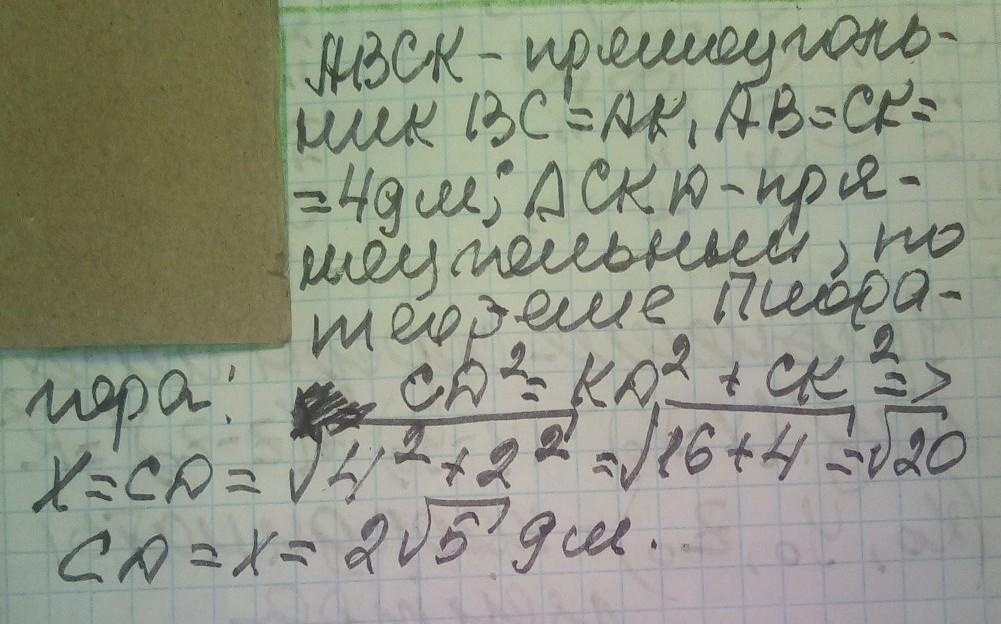 ABCK - прямоуголь-
ник BC=AK, AB=CK=
=4дм; ΔCKD - пря-
моугольный, по
теореме Пифа-
гора: CD²= KD² + CK² =>
X=CD= √4²+2² =√16+4 =√20
CD = x = 2√5 дм.